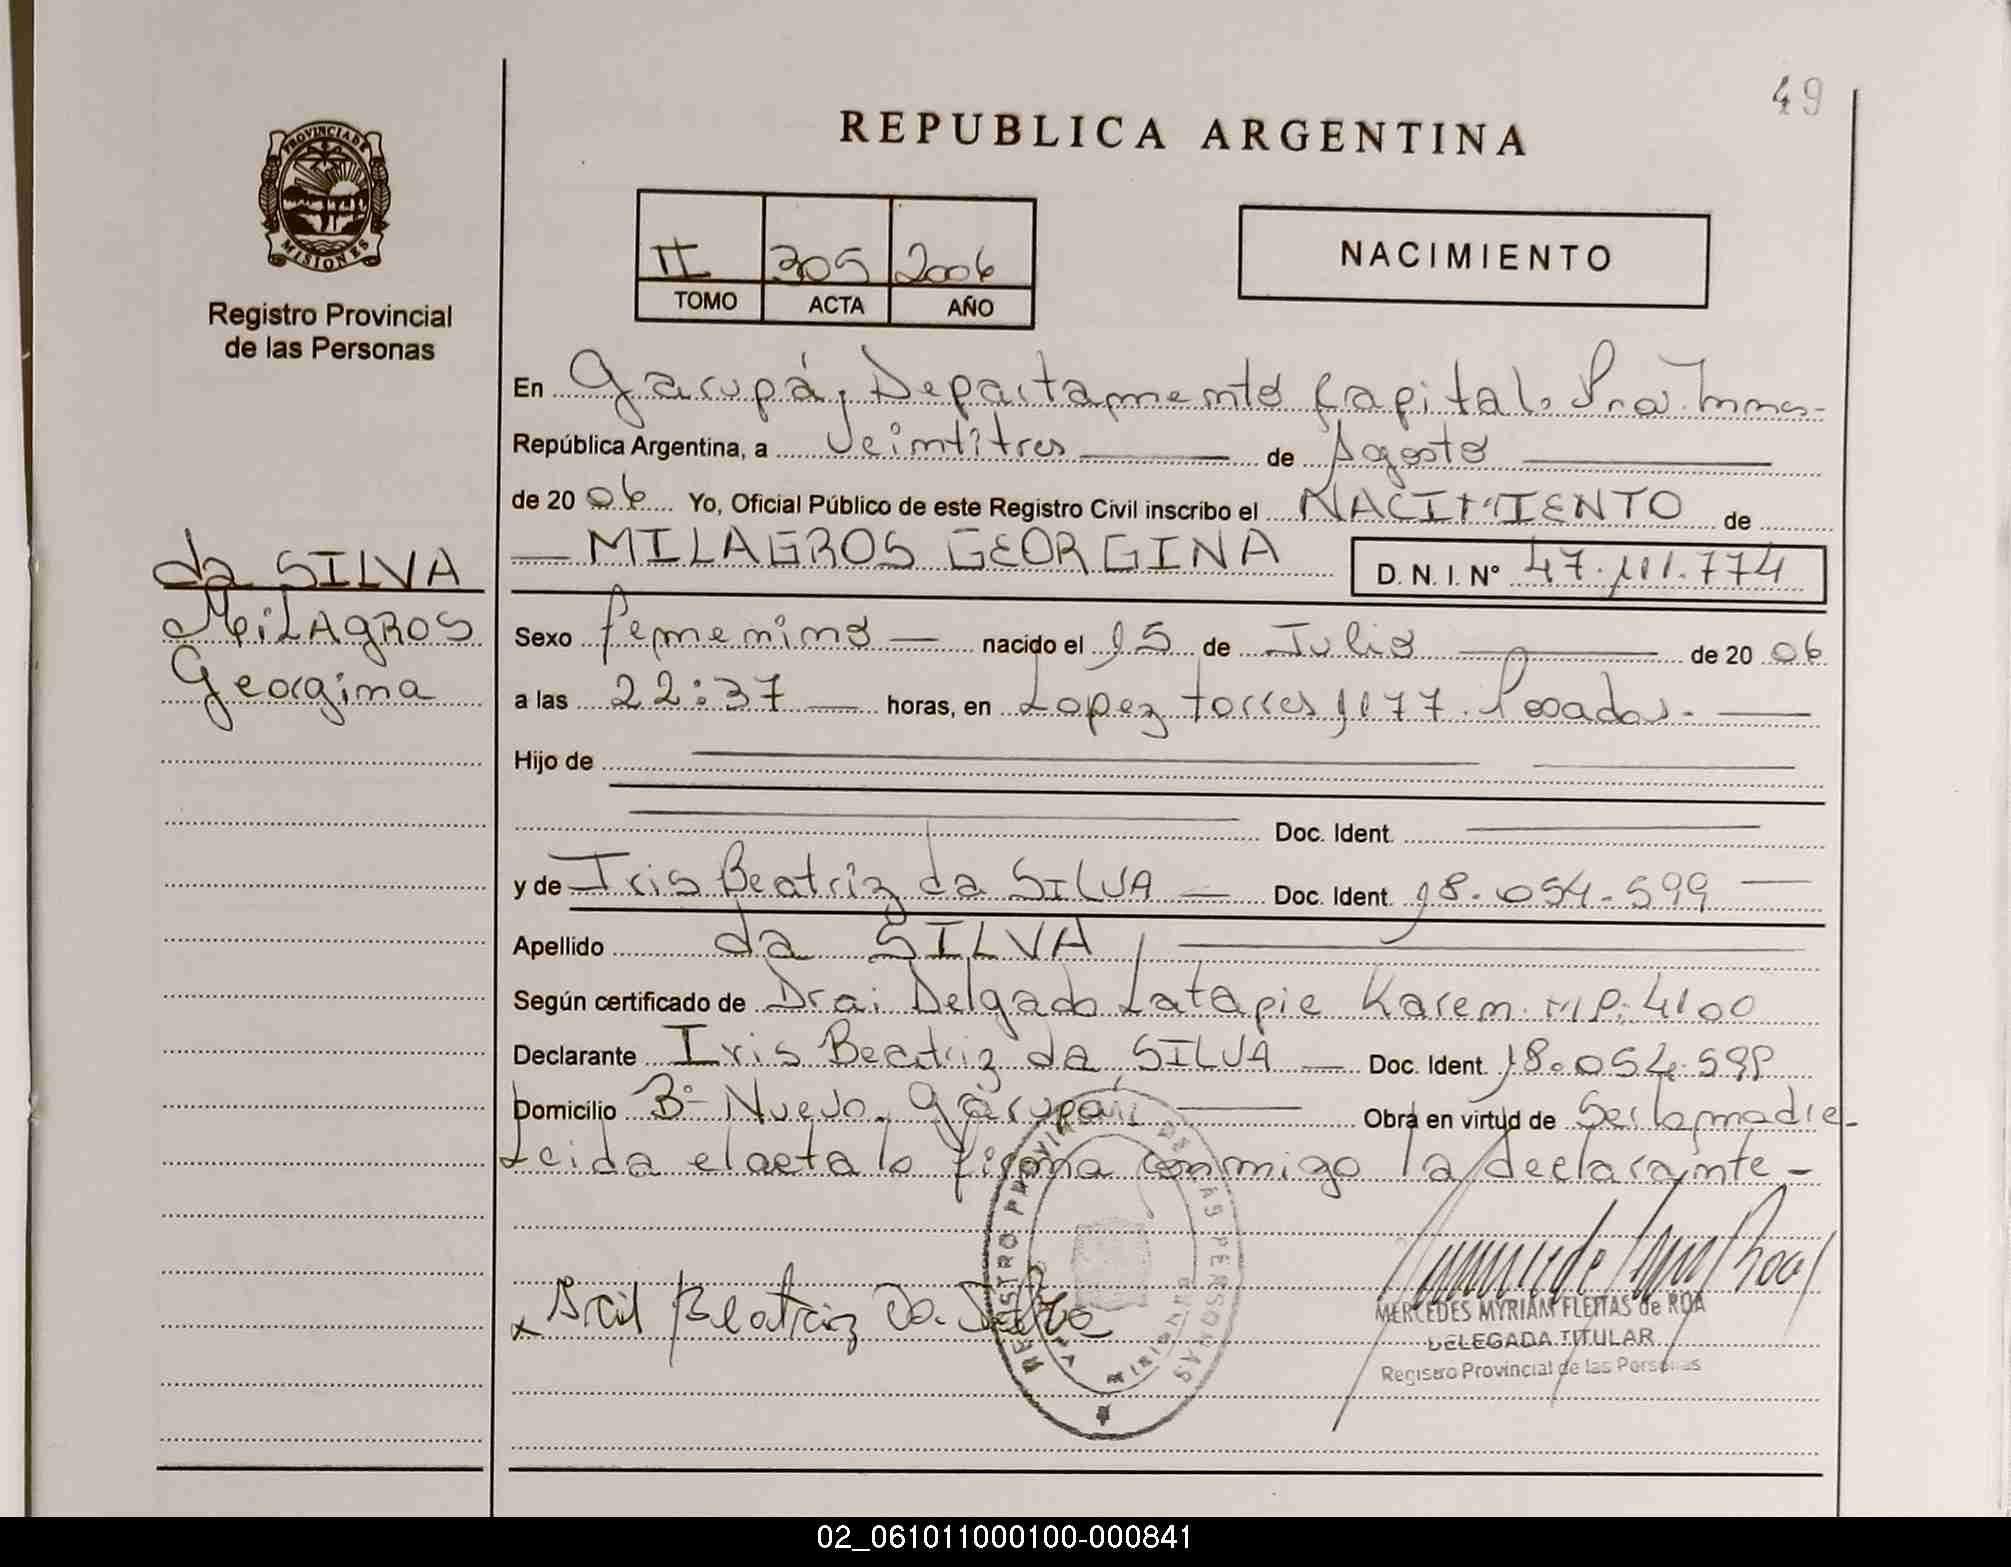 49
REPUBLICA ARGENTINA
PROVINCIA DE
MISIONES
Registro Provincial
de las Personas
II 305 2006
TOMO ACTA AÑO
NACIMIENTO
En Garupá, Departamento Capital. Pcia. Mnes-
República Argentina, a Veintitres de Agosto
de 2006 Yo, Oficial Público de este Registro Civil inscribo el NACIMIENTO de
MILAGROS GEORGINA D. N. I. Nº 47.111.774
da SILVA
MiLAgROS
Georgina
Sexo femenino nacido el 15 de Julio de 2006
a las 22:37 horas, en Lopez Torres 1177. Posadas.-
Hijo de
Doc. Ident.
y de Iris Beatriz da SILVA Doc. Ident. 18.054.599
Apellido da SILVA
Según certificado de Dra. Delgado Latapie Karem. M.P: 4100
Declarante Iris Beatriz da SILVA Doc. Ident. 18.054.599
Domicilio Bº Nuevo. Garupá. Obra en virtud de Ser la madre-
Leida el acta lo firma conmigo la declarante-
REGISTRO PROVINCIAL DE LAS PERSONAS
MISIONES
x Iris Beatriz Da Silva
MERCEDES MYRIAM FLEITAS de ROA
DELEGADA TITULAR
Registro Provincial de las Personas
02_061011000100-000841